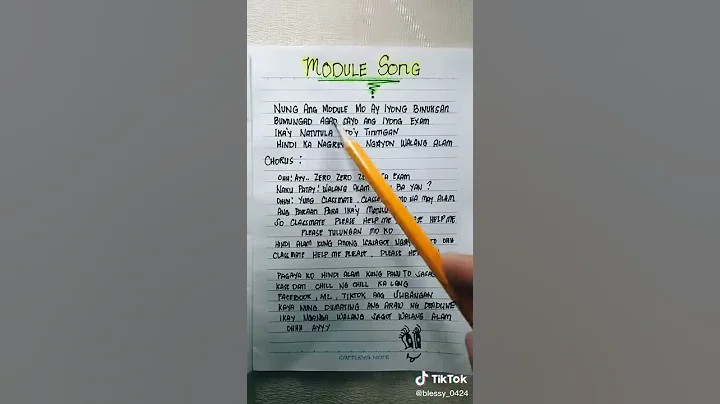 MODULE SONG
NUNG ANG MODULE MO AY IYONG BINUKSAN
BUMUNGAD AGAD SAYO ANG IYONG EXAM
IKA'Y NATUTULA TITITIGAN
HINDI KA NAGREV NGAYON WALANG ALAM
CHORUS:
OHH! AYY.. ZERO ZERO EXAM
NAKU PATAY! WALANG ALAM BA YAN?
OHH! YUNG CLASSMATE, CLASSM MO NA MAY ALAM
ANG PARAAN PARA IKA'Y
SO CLASSMATE PLEASE HELP ME HELP ME
PLEASE TULUNGAN MO KO
HINDI ALAM KUNG ANONG ISASAGOT OHH
CLASSMATE HELP ME PLEASE, PLEASE
PAGAYA KO HINDI ALAM KUNG PANU TO
KASE DATI CHILL NG CHILL KA LANG
FACEBOOK, ML, TIKTOK ANG
KAYA NUNG DUMATING ANG ARAW NG DEADLINE
IKAY NGANGA WALANG SAGOT WALANG ALAM
OHHH AYYY
CATTLEYA NOTE
TikTok
@blessy_0424